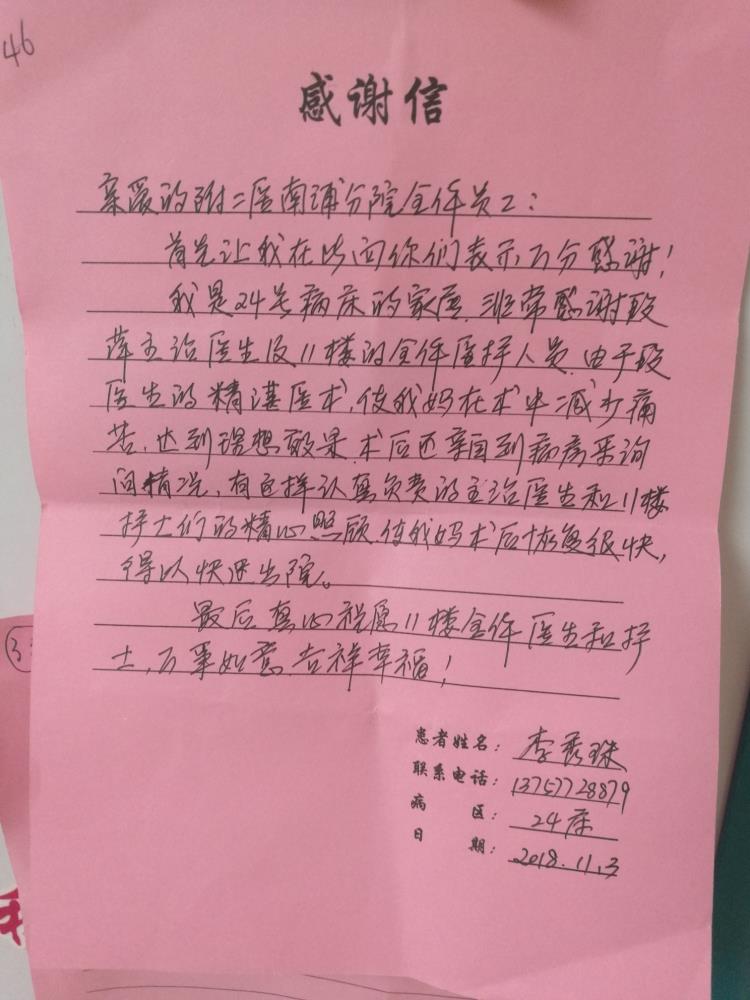 46
感谢信
亲爱的附二医南浦分院全体员工：
首先让我在此向你们表示万分感谢！
我是24号病床的家医.非常感谢段
萍主治医生及11楼的全体医护人员.由于段
医生的精湛医术,使我妈在术中减少痛
苦,达到理想效果.术后还亲自到病房来询
问情况,有这样认真负责的主治医生和11楼
护士们的精心照顾.使我妈术后恢复很快,
得以快速出院。
最后真心祝愿11楼全体医生和护
士,万事如意.吉祥幸福！
患者姓名：李秀珠
联系电话：13757728879
病区：24床
日期：2018.11.3